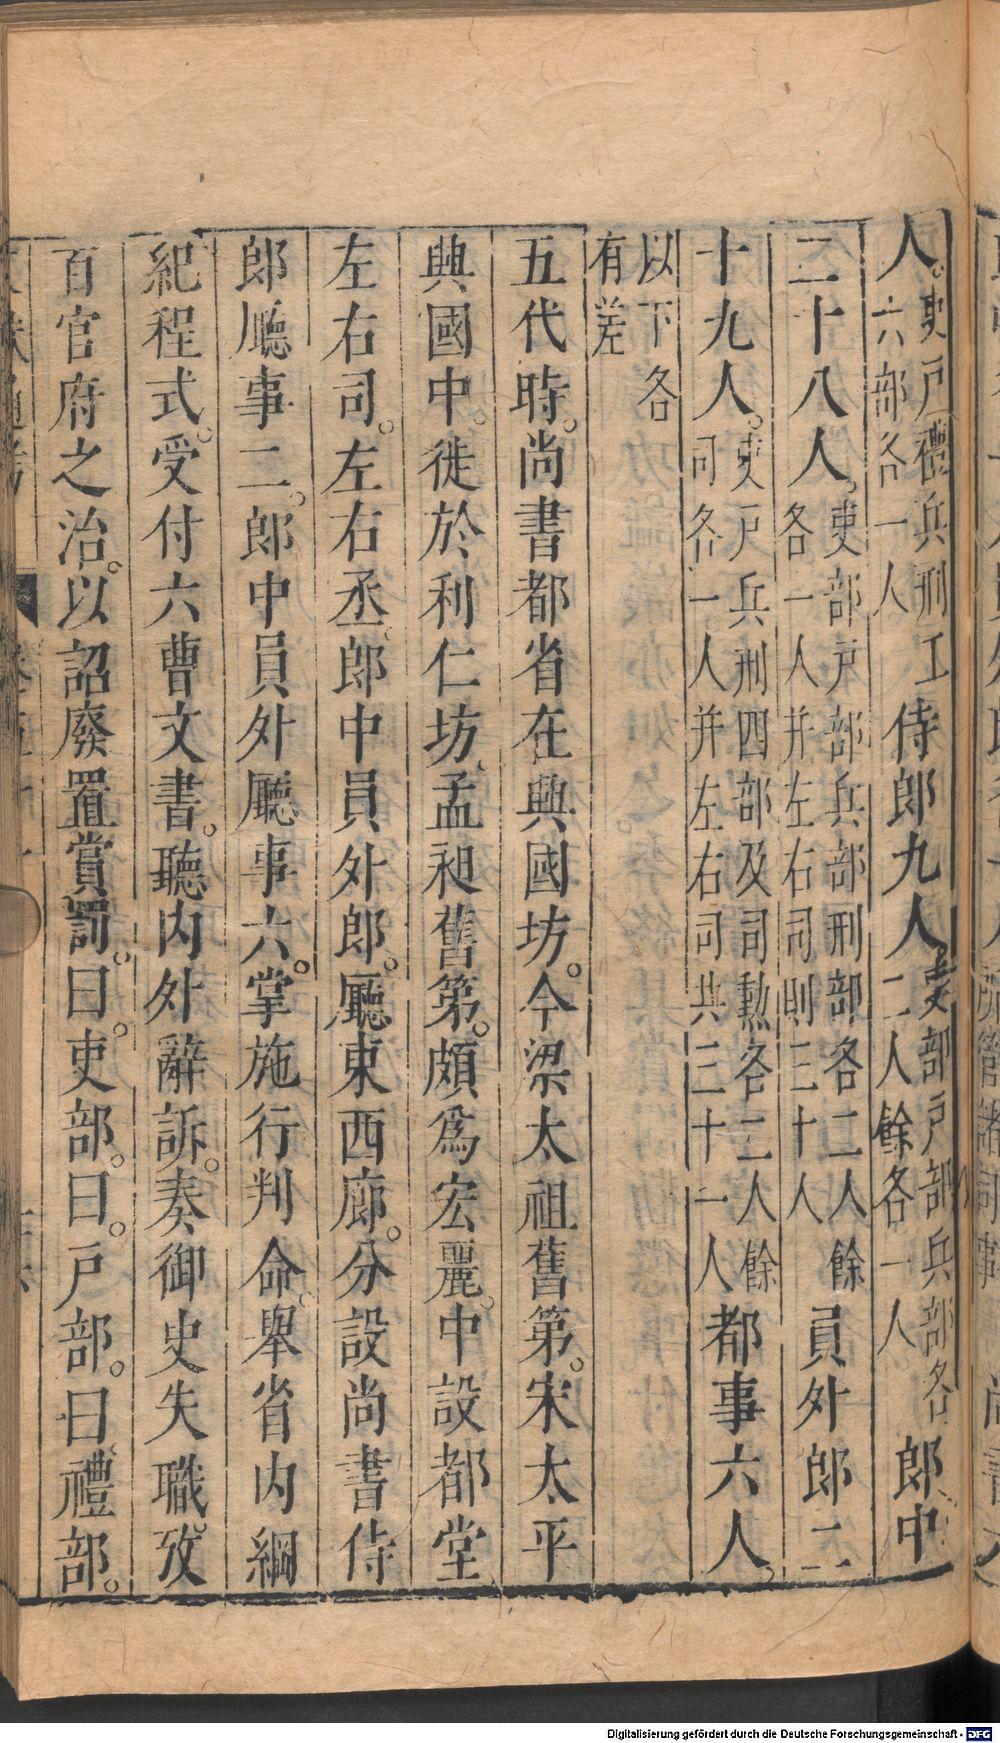 人。吏戸禮兵刑工六部各一人侍郎九人吏部戸部兵部各二人餘各一人郎中
二十八人。吏部戸部兵部刑部各二人餘各一人并左右司則三十人員外郎二
十九人。吏戸兵刑四部及司勲各二人餘司各一人并左右司共三十一人都事六人
以下各有差
五代時。尚書都省在興國坊。今梁太祖舊第。宋太平
興國中。徙於利仁坊、孟昶舊第。頗爲宏麗。中設都堂
左右司。左右丞、郎中員外郎。廳東西廊。分設尚書侍
郎廳事二。郎中員外廳事六。掌施行判命。舉省内綱
紀程式。受付六曹文書。聽内外辭訴。奏御史失職。攷
百官府之治。以詔廢置賞罰。曰。吏部。曰。戸部。曰、禮部。
Digitalisierung gefördert durch die Deutsche Forschungsgemeinschaft - DFG